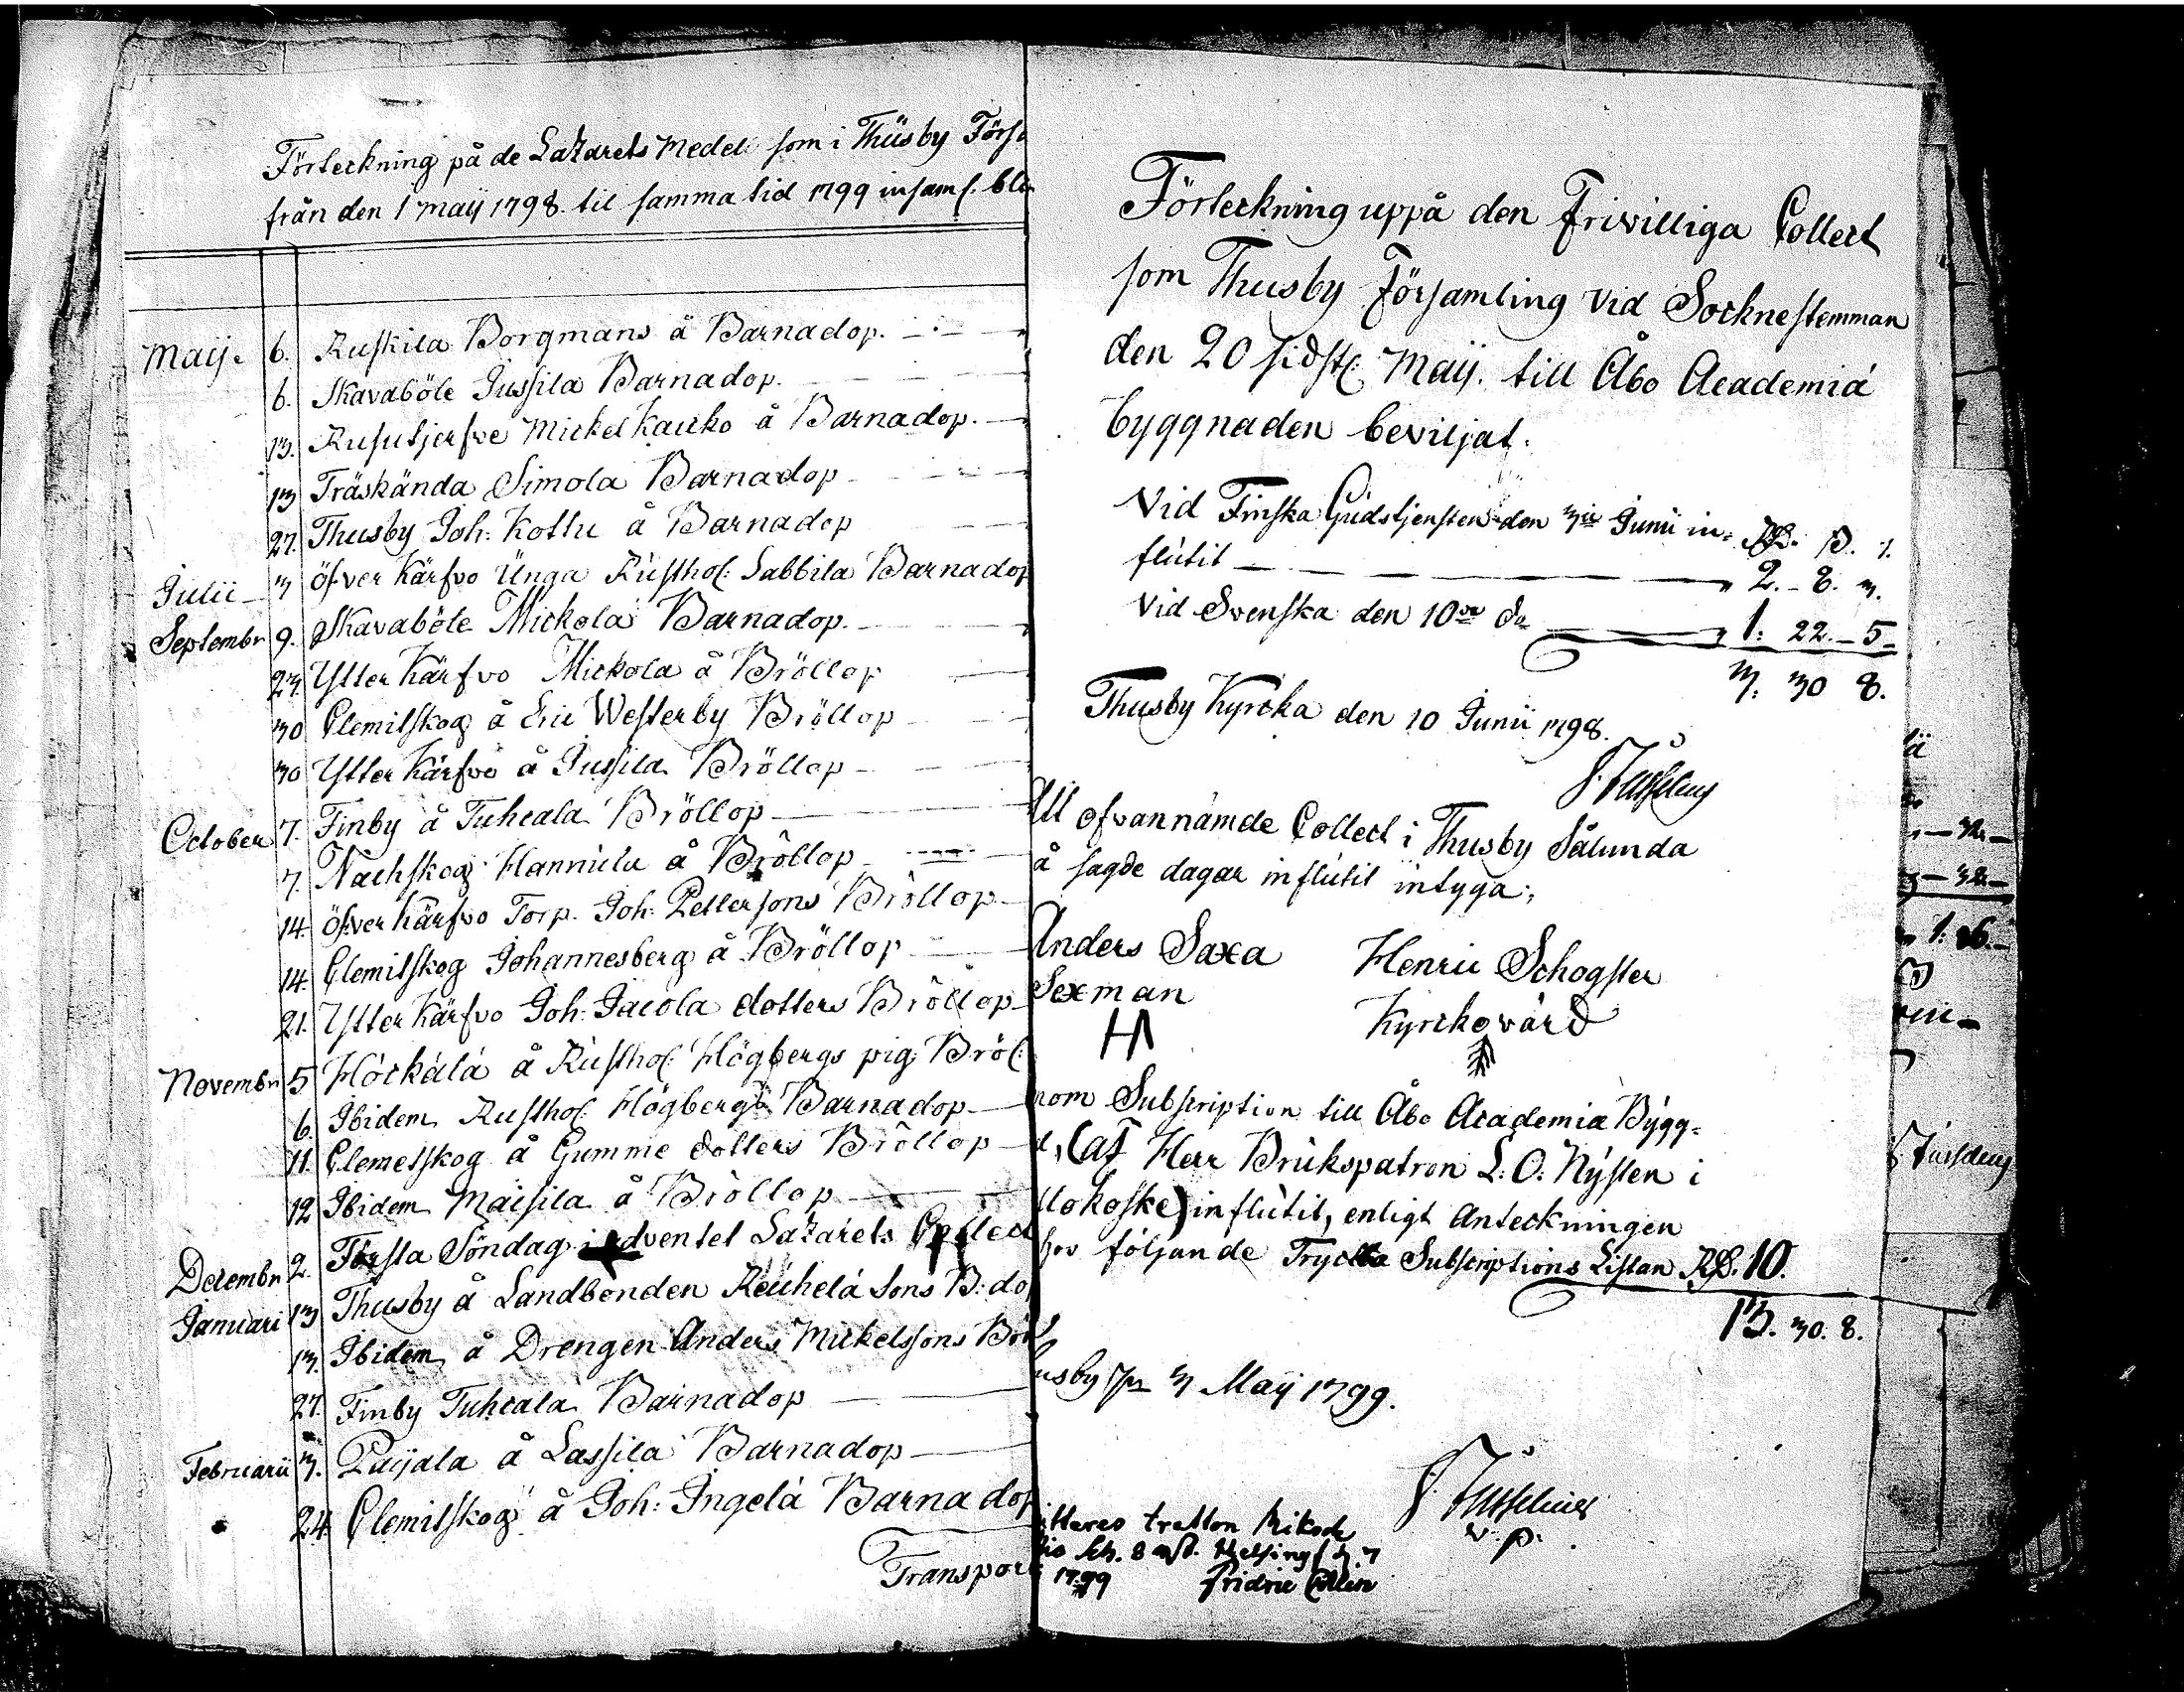 Förteckning på de Lazarets Medel som i Thusby Förs
från den 1 Maij 1798. til samma tid 1799 insaml. bl
Maij. 6. Ruskila Borgmans å Barnadop.
6. Skavaböle Jussila Barnadop.
13. Rusutjerfve Mickel Kauko å Barnadop.
13 Träskända Simola Barnadop
27. Thusby Joh: Kottu å Barnadop
Julii 3 öfver Kärfvo Ünga Rusthol: Labbila Barnadop
Septembr 9. Skavaböle Mickola Barnadop.
23. Ytter Kärfvo Mickola å Bröllop
30 Clemitskog å Eric Westerby Bröllop
30 Ytter Kärfvo å Jussila Bröllop
October 7. Finby å Tuhcala Bröllop
7. Nachskog Hannula å Bröllop
14. öfver Kärfvo Torp. Joh: Pettersons Bröllop
14. Clemitskog Johannesberg å Bröllop
21. Ytter Kärfvo Joh: Jacola dotters Bröllop
Novembr 5 Hóckálá å Rusthol: Högbergs pig. Bröl:
6. Ibidem Rusthol: Högbergs Barnadop
11. Clemetskog å Gumme dotters Bröllop
12 Ibidem Maisila å Bröllop
Decembr 2. Första Söndag i adventet Lazarets Collect
Januari 13 Thusby å Landbonden Reuhelá Sons B: do
13. Ibidem å Drengen Anders Mickelssons Bröl
27. Finby Tuhcala Barnadop
Februarii 3. Paijala å Lassila Barnadop
24. Clemitskog å Joh: Ingelá Barnadop
Transport
Förteckning uppå den Frivilliga Collect
som Thusby Församling vid Socknestemman
den 20 sidstl: Maij. till Åbo Academiá
byggnaden beviljat.
Vid Finska Gudstjensten den 3ie Junii in= Rd. ß. r.
flutit 2.-8. 3.
Vid Svenska den 10de do 1: 22.-5-
3: 30 8.
Thusby Kyrcka den 10 Junii 1798.
Att ofvannämde Collect i Thusby Sålunda
å sagde dagar influtit intyga;
Anders Saxa Henric Schogster
Sexman Kyrckovärd
nom Subscription till Åbo Academia Bygg=
d, (af Herr Brukspatron L: O: Nysten i
llokoske) influtit, enligt Anteckningen
hos följande Tryckta Subscriptions Listan Rd: 10.
13. 30. 8.
usby 3 Maij 1799.
v. p.
itteras tretton Riksd
sk. 8 rst. Helsingf d. 7
1799 Fridric